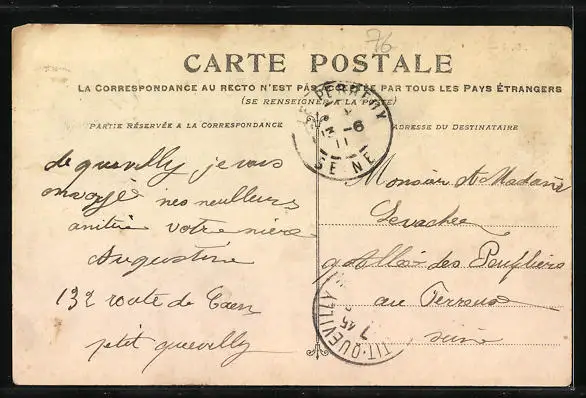 76
CARTE POSTALE
LA CORRESPONDANCE AU RECTO N'EST PAS ACCEPTÉE PAR TOUS LES PAYS ÉTRANGERS
(SE RENSEIGNER A LA POSTE)
PARTIE RÉSERVÉE A LA CORRESPONDANCE
ADRESSE DU DESTINATAIRE
LE PERREUX
-6
11
SEINE
de quevilly je vous
envoye mes meilleurs
amitié votre nièce
Augustine
132 route de Caen
petit quevilly
Monsieur et Madame
Levachee
9 Allée des Peupliers
au Perreux
seine
TIT-QUEVILLY
7 45